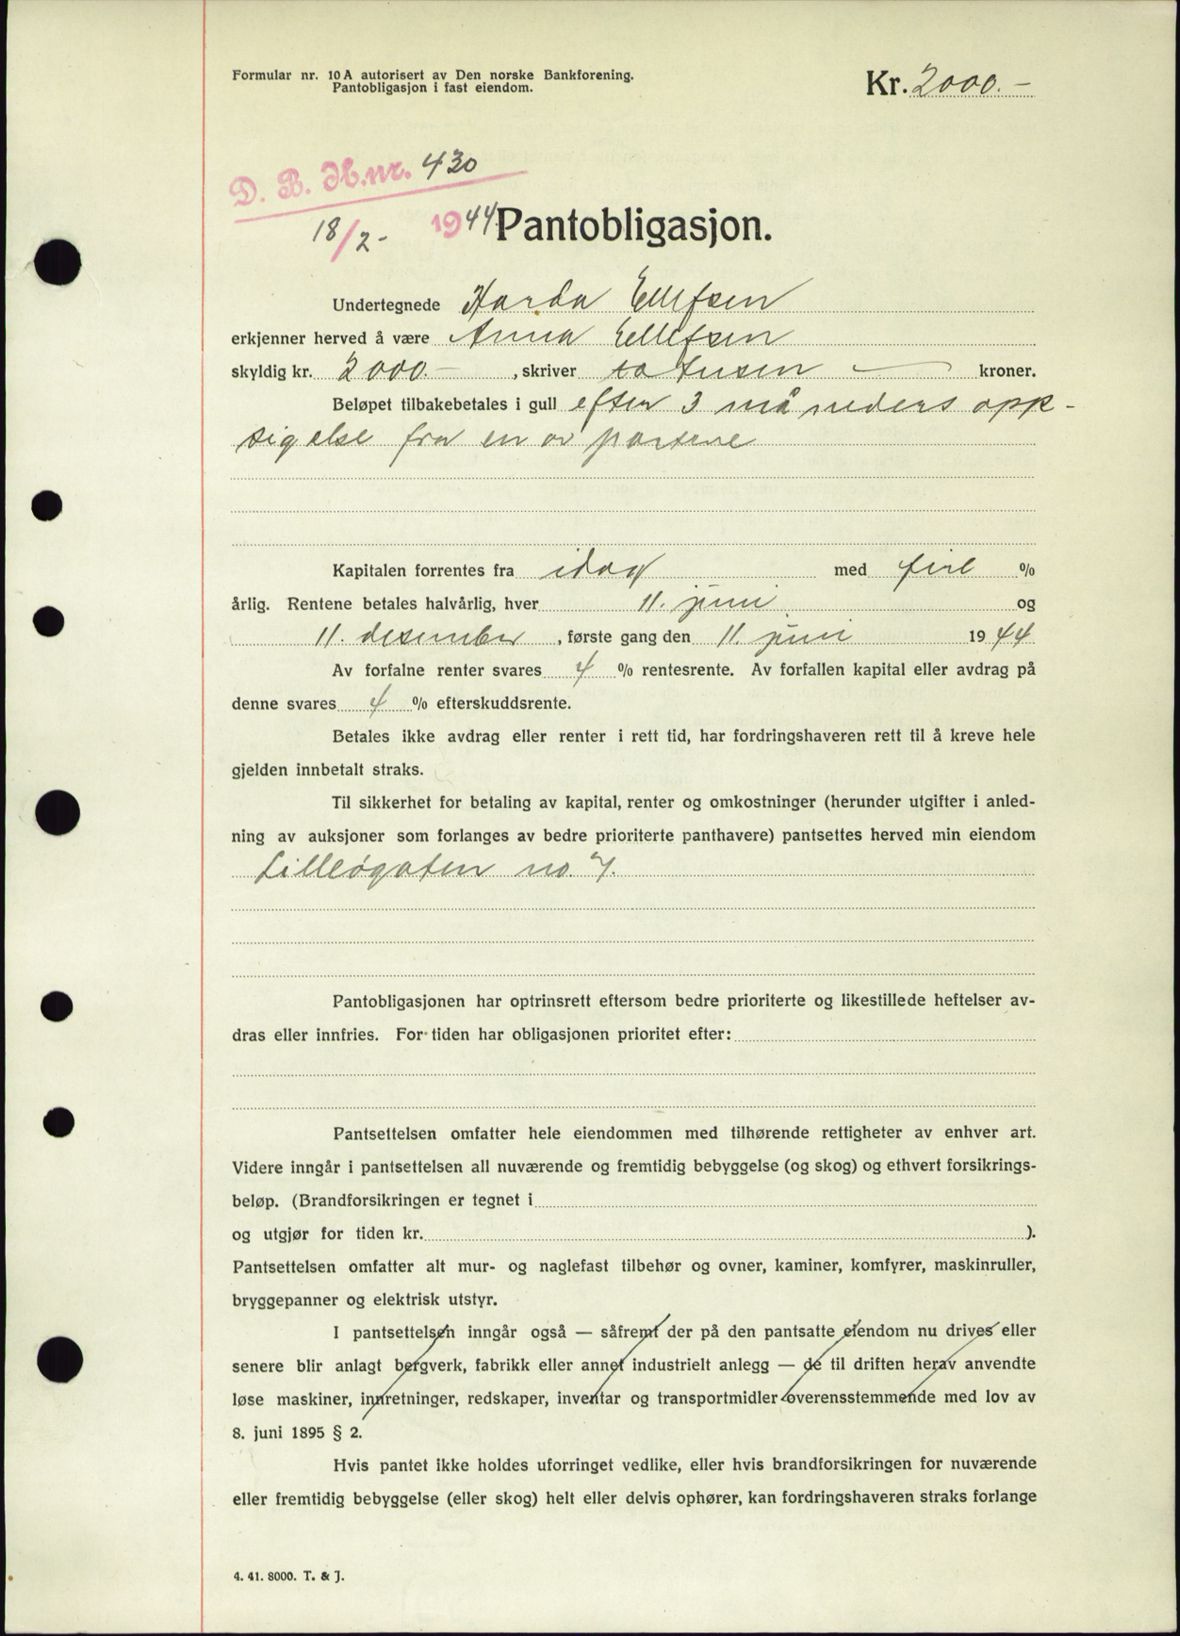 Formular nr. 10 A autorisert av Den norske Bankforening.
Pantobligasjon i fast eiendom.
Kr. 2000.–
D. B. H.nr. 430
18/2- 1944
Pantobligasjon.
Undertegnede Harda Ellefsen
erkjenner herved å være Anna Ellefsen
skyldig kr. 2000.–, skriver to tusen — kroner.
Beløpet tilbakebetales i gull efter 3 måneders opp-
sigelse fra en av partene
Kapitalen forrentes fra idag med fire %
årlig. Rentene betales halvårlig, hver 11. juni og
11. desember, første gang den 11. juni 1944
Av forfalne renter svares 4 % rentesrente. Av forfallen kapital eller avdrag på
denne svares 4 % efterskuddsrente.
Betales ikke avdrag eller renter i rett tid, har fordringshaveren rett til å kreve hele
gjelden innbetalt straks.
Til sikkerhet for betaling av kapital, renter og omkostninger (herunder utgifter i anled-
ning av auksjoner som forlanges av bedre prioriterte panthavere) pantsettes herved min eiendom
Lilleøgaten no. 7.
Pantobligasjonen har optrinsrett eftersom bedre prioriterte og likestillede heftelser av-
dras eller innfries. For tiden har obligasjonen prioritet efter:
Pantsettelsen omfatter hele eiendommen med tilhørende rettigheter av enhver art.
Videre inngår i pantsettelsen all nuværende og fremtidig bebyggelse (og skog) og ethvert forsikrings-
beløp. (Brandforsikringen er tegnet i
og utgjør for tiden kr. ).
Pantsettelsen omfatter alt mur- og naglefast tilbehør og ovner, kaminer, komfyrer, maskinruller,
bryggepanner og elektrisk utstyr.
I pantsettelsen inngår også — såfremt der på den pantsatte eiendom nu drives eller
senere blir anlagt bergverk, fabrikk eller annet industrielt anlegg — de til driften herav anvendte
løse maskiner, innretninger, redskaper, inventar og transportmidler overensstemmende med lov av
8. juni 1895 § 2.
Hvis pantet ikke holdes uforringet vedlike, eller hvis brandforsikringen for nuværende
eller fremtidig bebyggelse (eller skog) helt eller delvis ophører, kan fordringshaveren straks forlange
4. 41. 8000. T. & J.